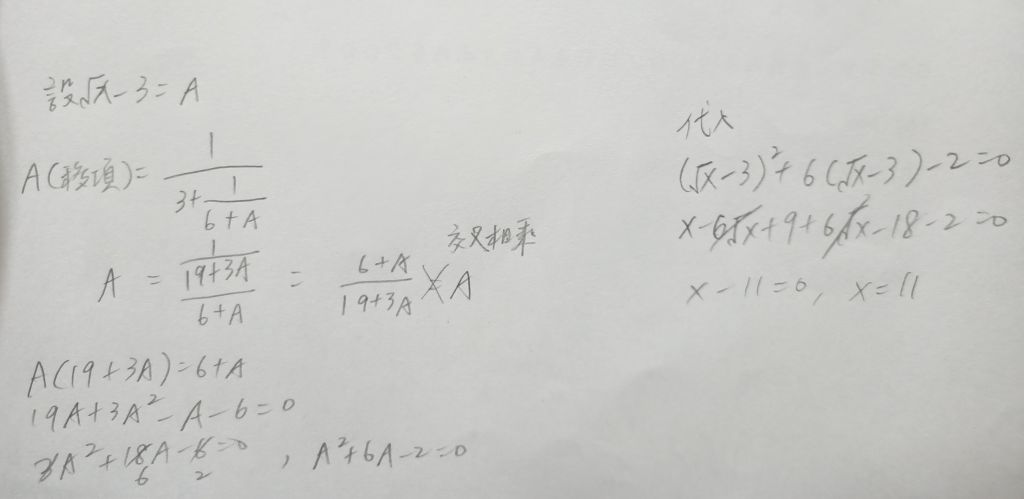 設√x-3=A
A(移項)=1/(3+1/(6+A))
A=1/((19+3A)/(6+A))=(6+A)/(19+3A)╳A 交叉相乘
A(19+3A)=6+A
19A+3A²-A-6=0
3A²+18A-6=0, A²+6A-2=0
6 2
代入
(√x-3)²+6(√x-3)-2=0
x-6√x+9+6√x-18-2=0
x-11=0, x=11